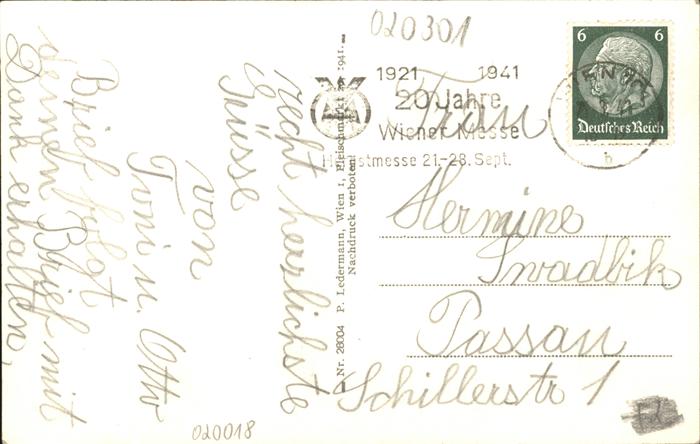 020301
1921 1941
20 Jahre
Wiener Messe
Herbstmesse 21.-28. Sept.
6 6
Deutsches Reich
b
Frau
Hermine
Swadbik
Passau
Schillerstr 1
recht herzlichste
Grüsse
von
Toni u. Otto
Brief folgt
deinen Brief mit
Dank erhalten,
Nr. 28004 P. Ledermann, Wien I, Fleischmarkt 1941.
Nachdruck verboten
020018